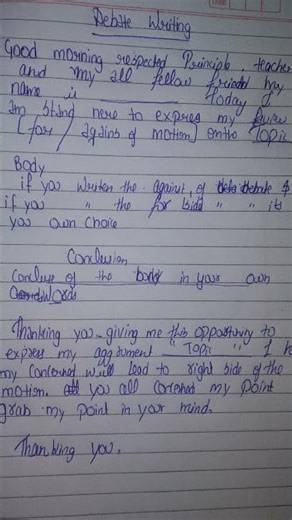 Debate Writing
Good morning respected Principle, teacher
and my all fellow friends my
name is ________ Today I
am stand here to expres my view
[for / agains of motion] on the Topic
Body
if you written the against, of debate &
if you " the for side " " its
you own choice
Conclusion
Concluse of the body in your own
words
Thanking you giving me this opportunity to
expres my aggument "Topic" I h
my concerned will lead to right side of the
motion. you all my point
grab my point in your mind.
Thanking you.